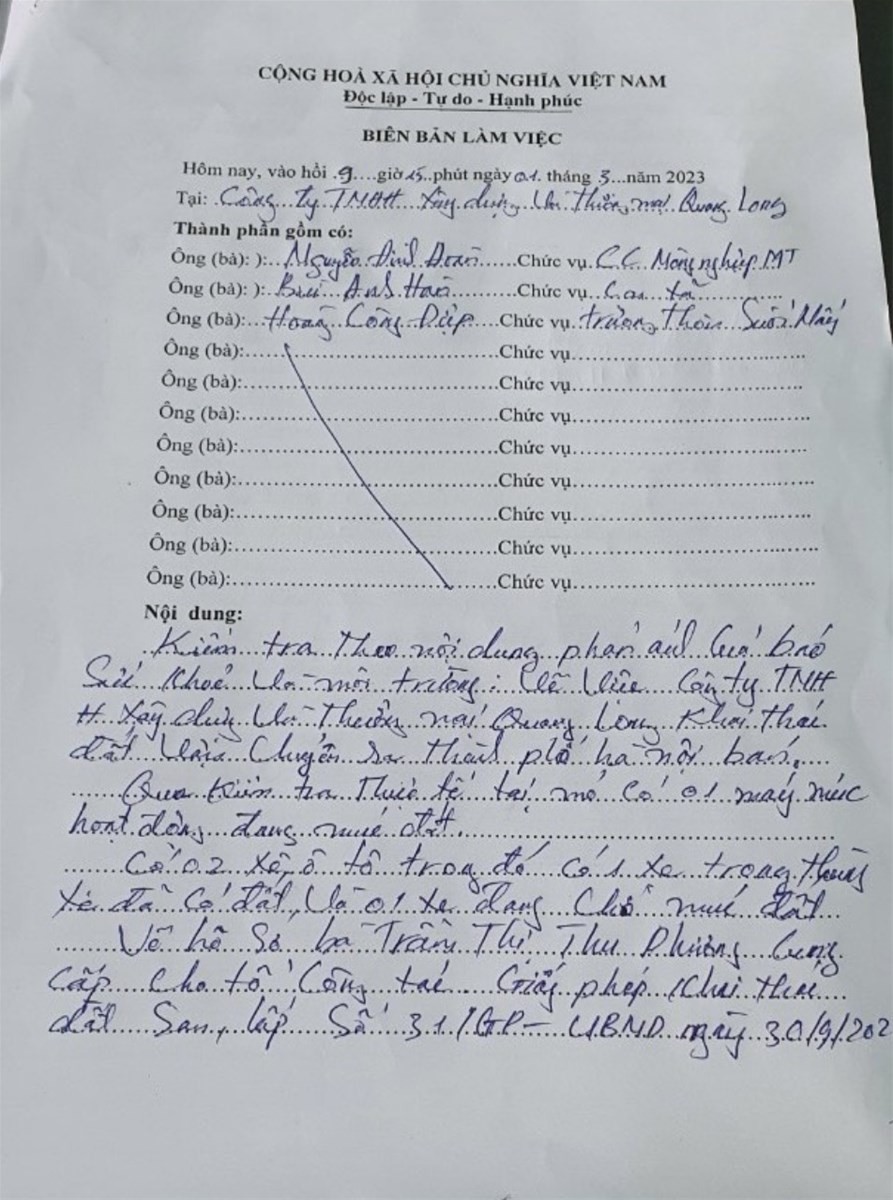 CỘNG HOÀ XÃ HỘI CHỦ NGHĨA VIỆT NAM
Độc lập - Tự do - Hạnh phúc
BIÊN BẢN LÀM VIỆC
Hôm nay, vào hồi .9....giờ 15..phút ngày 01. tháng 3...năm 2023
Tại: Công ty TNHH xây dựng và Thương mại Quang Long
Thành phần gồm có:
Ông (bà): ):...Nguyễn Đình Đoàn......Chức vụ CC Nông nghiệp MT
Ông (bà): ):..Bùi Anh Hào............Chức vụ..Can xã............
Ông (bà):...Hoàng Công Diệp....Chức vụ trưởng Thôn Suối Mây
Ông (bà):....................................Chức vụ..............................
Ông (bà):....................................Chức vụ..............................
Ông (bà):....................................Chức vụ..............................
Ông (bà):....................................Chức vụ..............................
Ông (bà):....................................Chức vụ..............................
Ông (bà):....................................Chức vụ..............................
Ông (bà):....................................Chức vụ..............................
Ông (bà):....................................Chức vụ..............................
Nội dung:
Kiểm tra theo nội dung phản ánh của báo
Sức khoẻ và môi trường: về việc Công ty TNH
H xây dựng và Thương mại Quang Long khai thác
đất vận chuyển ra thành phố hà nội bán.
Qua kiểm tra thực tế tại mỏ có 01 máy múc
hoạt động đang múc đất
Có 02 xe ô tô trong đó có 1 xe trong thùng
xe đã có đất, và 01 xe đang chờ múc đất
Về hồ sơ bà Trần Thị Thu Phương cung
cấp cho tổ công tác Giấy phép khai thác
đất san lấp số 31/GP-UBND ngày 30/9/202